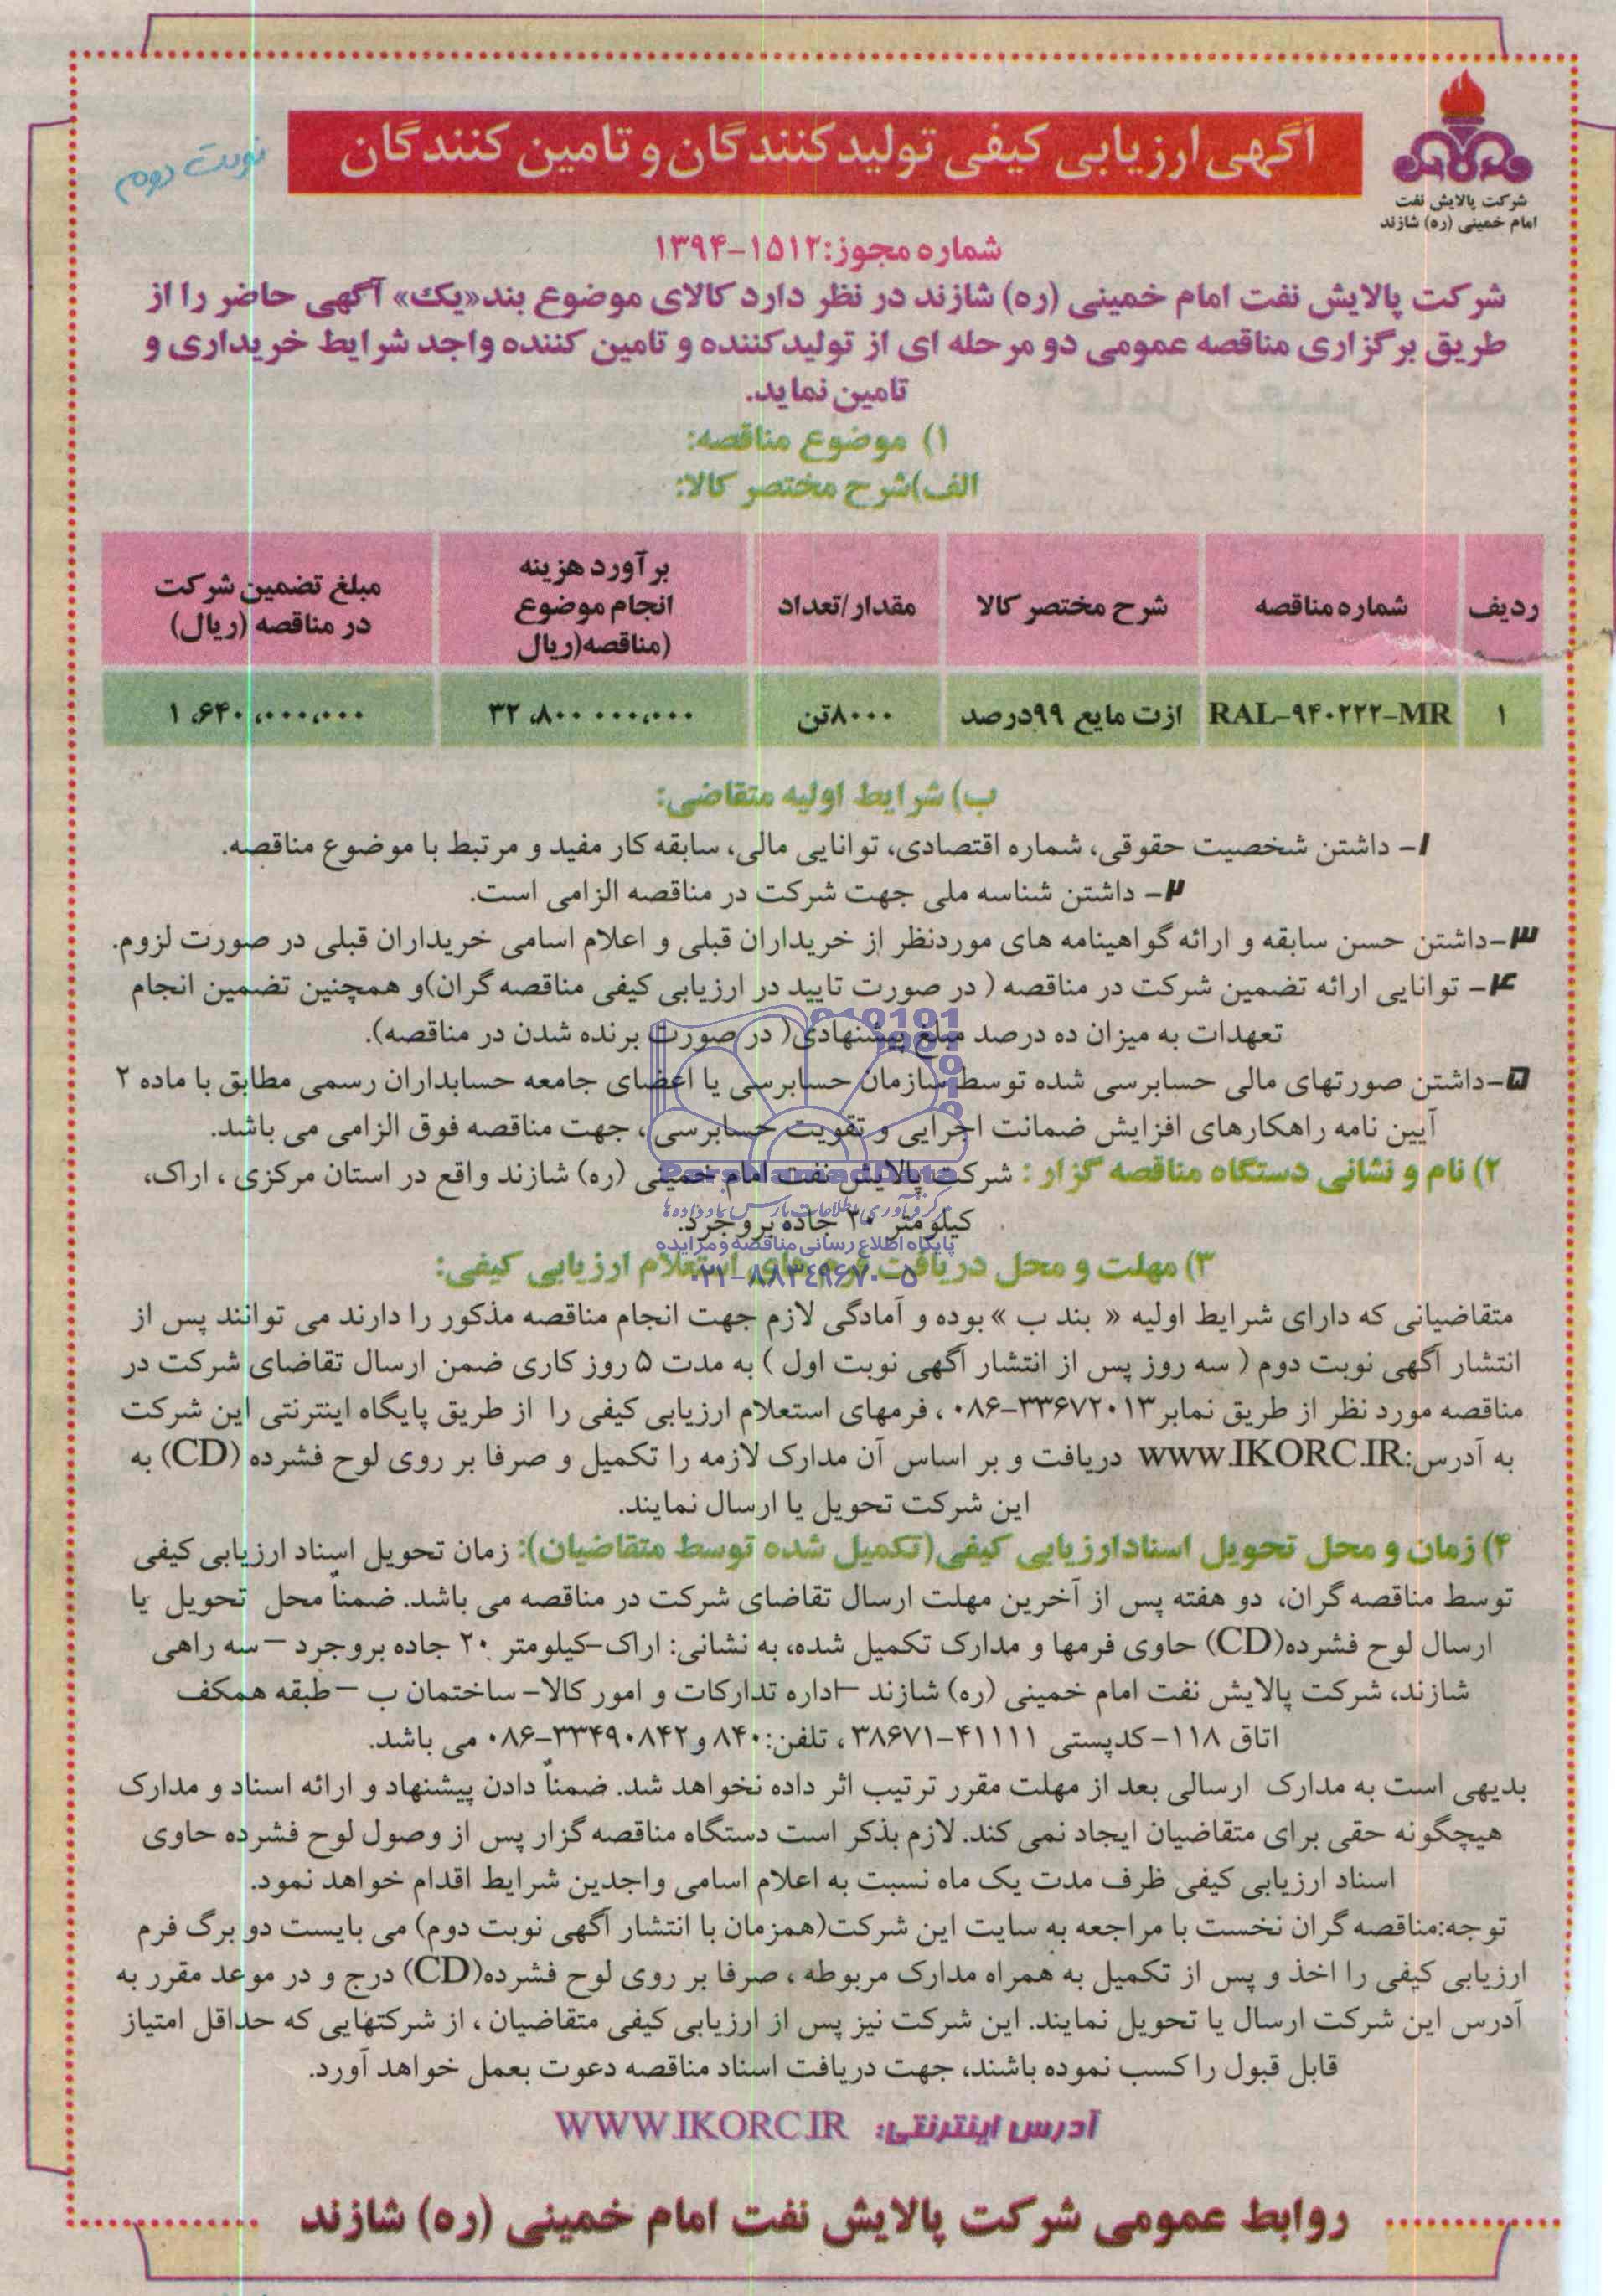 شرکت پالایش نفت
امام خمینی (ره) شازند
آگهی ارزیابی کیفی تولیدکنندگان و تامین کنندگان
نوبت دوم
شماره مجوز:۱۵۱۲-۱۳۹۴
شرکت پالایش نفت امام خمینی (ره) شازند در نظر دارد کالای موضوع بند«یک» آگهی حاضر را از
طریق برگزاری مناقصه عمومی دو مرحله ای از تولیدکننده و تامین کننده واجد شرایط خریداری و
تامین نماید.
۱) موضوع مناقصه:
الف)شرح مختصر کالا:
ردیف شماره مناقصه شرح مختصر کالا مقدار/تعداد برآورد هزینه انجام موضوع (مناقصه(ریال مبلغ تضمین شرکت در مناقصه (ریال)
۱ RAL-۹۴۰۲۲۲-MR ازت مایع ۹۹درصد ۸۰۰۰تن ۳۲،۸۰۰ ۰۰۰،۰۰۰ ۱،۶۴۰،۰۰۰،۰۰۰
ب) شرایط اولیه متقاضی:
۱- داشتن شخصیت حقوقی، شماره اقتصادی، توانایی مالی، سابقه کار مفید و مرتبط با موضوع مناقصه.
۲- داشتن شناسه ملی جهت شرکت در مناقصه الزامی است.
۳-داشتن حسن سابقه و ارائه گواهینامه های موردنظر از خریداران قبلی و اعلام اسامی خریداران قبلی در صورت لزوم.
۴- توانایی ارائه تضمین شرکت در مناقصه ( در صورت تایید در ارزیابی کیفی مناقصه گران)و همچنین تضمین انجام
تعهدات به میزان ده درصد مبلغ پیشنهادی( در صورت برنده شدن در مناقصه).
۵-داشتن صورتهای مالی حسابرسی شده توسط سازمان حسابرسی یا اعضای جامعه حسابداران رسمی مطابق با ماده ۲
آیین نامه راهکارهای افزایش ضمانت اجرایی و تقویت حسابرسی ، جهت مناقصه فوق الزامی می باشد.
۲) نام و نشانی دستگاه مناقصه گزار : شرکت پالایش نفت امام خمینی (ره) شازند واقع در استان مرکزی ، اراک،
کیلومتر ۲۰ جاده بروجرد.
ParsNamadData
مرکز فرآوری اطلاعات پارس نماد داده ها
پایگاه اطلاع رسانی مناقصه و مزایده
۰۲۱-۸۸۳۴۹۶۷۰-۵
۳) مهلت و محل دریافت فرم های استعلام ارزیابی کیفی:
متقاضیانی که دارای شرایط اولیه « بند ب »بوده و آمادگی لازم جهت انجام مناقصه مذکور را دارند می توانند پس از
انتشار آگهی نوبت دوم ( سه روز پس از انتشار آگهی نوبت اول ) به مدت ۵ روز کاری ضمن ارسال تقاضای شرکت در
مناقصه مورد نظر از طریق نمابر۳۳۶۷۲۰۱۳-۰۸۶ ، فرمهای استعلام ارزیابی کیفی را از طریق پایگاه اینترنتی این شرکت
به آدرس:www.IKORC.IR دریافت و بر اساس آن مدارک لازمه را تکمیل و صرفا بر روی لوح فشرده (CD) به
این شرکت تحویل یا ارسال نمایند.
۴) زمان و محل تحویل اسنادارزیابی کیفی(تکمیل شده توسط متقاضیان): زمان تحویل اسناد ارزیابی کیفی
توسط مناقصه گران، دو هفته پس از آخرین مهلت ارسال تقاضای شرکت در مناقصه می باشد. ضمناً محل تحویل یا
ارسال لوح فشرده(CD) حاوی فرمها و مدارک تکمیل شده، به نشانی: اراک-کیلومتر ۲۰ جاده بروجرد -سه راهی
شازند، شرکت پالایش نفت امام خمینی (ره) شازند -اداره تدارکات و امور کالا- ساختمان ب -طبقه همکف
اتاق ۱۱۸- کدپستی ۴۱۱۱۱-۳۸۶۷۱ ، تلفن:۸۴۰ و۳۳۴۹۰۸۴۲-۰۸۶ می باشد.
بدیهی است به مدارک ارسالی بعد از مهلت مقرر ترتیب اثر داده نخواهد شد. ضمناً دادن پیشنهاد و ارائه اسناد و مدارک
هیچگونه حقی برای متقاضیان ایجاد نمی کند. لازم بذکر است دستگاه مناقصه گزار پس از وصول لوح فشرده حاوی
اسناد ارزیابی کیفی ظرف مدت یک ماه نسبت به اعلام اسامی واجدین شرایط اقدام خواهد نمود.
توجه:مناقصه گران نخست با مراجعه به سایت این شرکت(همزمان با انتشار آگهی نوبت دوم) می بایست دو برگ فرم
ارزیابی کیفی را اخذ و پس از تکمیل به همراه مدارک مربوطه ، صرفا بر روی لوح فشرده(CD) درج و در موعد مقرر به
آدرس این شرکت ارسال یا تحویل نمایند. این شرکت نیز پس از ارزیابی کیفی متقاضیان ، از شرکتهایی که حداقل امتیاز
قابل قبول را کسب نموده باشند، جهت دریافت اسناد مناقصه دعوت بعمل خواهد آورد.
آدرس اینترنتی: WWW.IKORC.IR
روابط عمومی شرکت پالایش نفت امام خمینی (ره) شازند